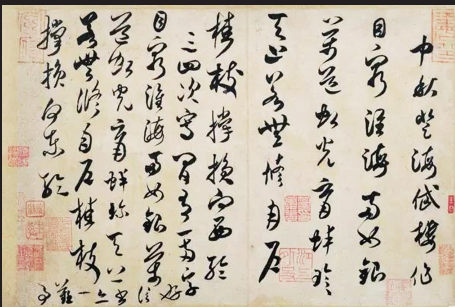 中秋登海岱樓作
目窮淮海兩如銀
萬道虹光育蚌珍
天上若無修月戶
桂枝撐損向西輪
三四次寫間有一兩字
好
信
書
亦
一
難
事
目窮淮海兩如銀萬
道虹光育蚌珍天上
若無修月戶桂枝
撐損向東輪